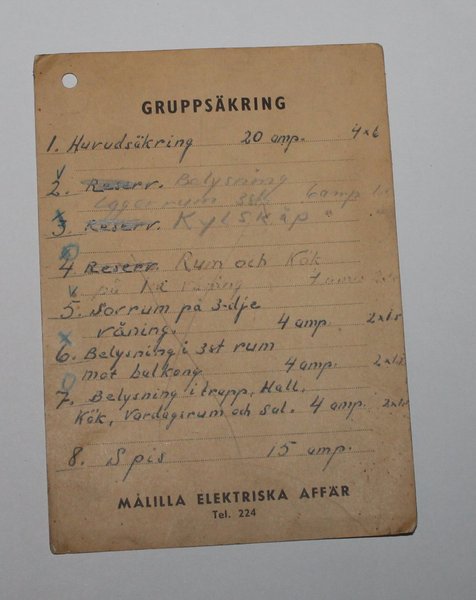 GRUPPSÄKRING
1. Huvudsäkring 20 amp. 4x6
2. Reserv. Belysning
Lagerrum 3st 6 amp
3. Reserv. Kylskåp "
4 Reserv Rum och Kök
på våning 4 amp
5. Sovrum på 3-dje
våning. 4 amp. 2x1.5
6. Belysning i 3st rum
mot balkong 4 amp. 2x1.5
7. Belysning i trapp, Hall,
Kök, Vardagsrum och Sal. 4 amp. 2x1.5
8. Spis 15 amp.
MÅLILLA ELEKTRISKA AFFÄR
Tel. 224